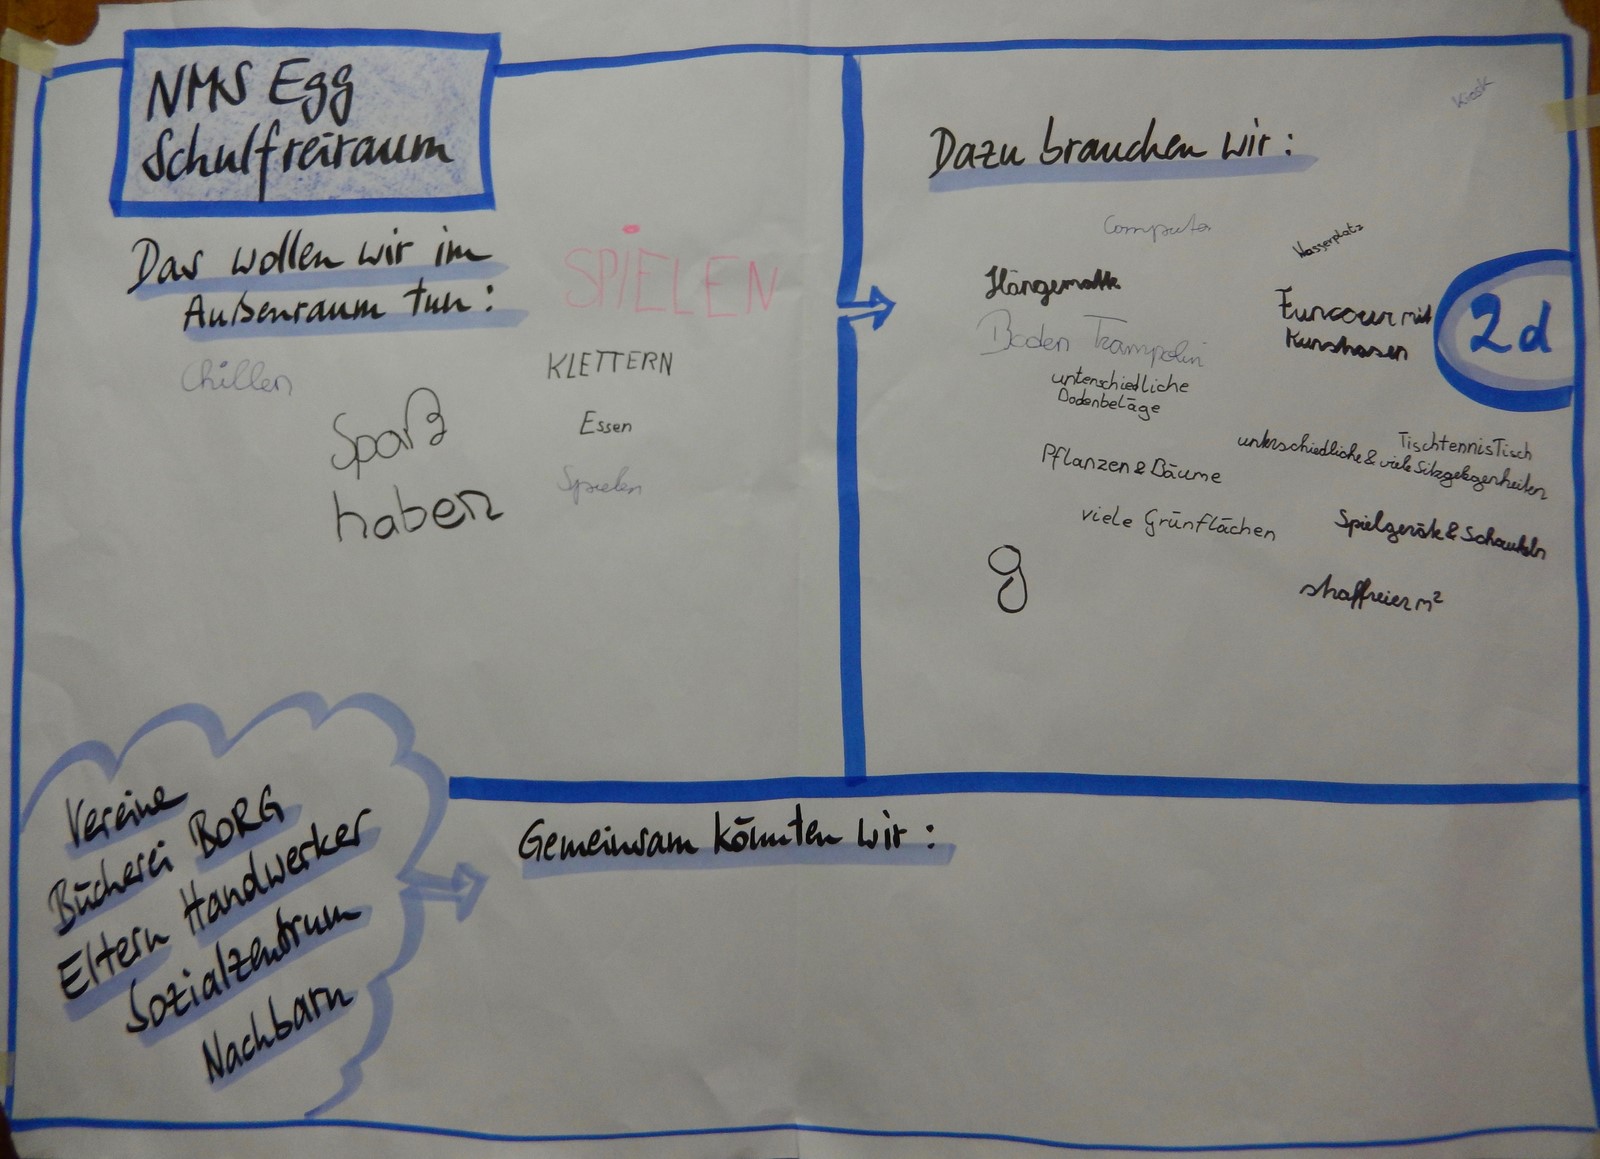 NMS Egg
Schulfreiraum
Das wollen wir im
Außenraum tun:
SPIELEN
Chillen
KLETTERN
Spaß
haben
Essen
Spielen
Dazu brauchen wir:
Kiosk
Computer
Wasserplatz
Hängematte
Boden Trampolin
unterschiedliche
Bodenbeläge
Funcour mit
Kunstrasen
2d
TischtennisTisch
unterschiedliche & viele Sitzgelegenheiten
Pflanzen & Bäume
viele Grünflächen
Spielgeräte & Schaukeln
Vereine
Bücherei BORG
Eltern Handwerker
Sozialzentrum
Nachbarn
Gemeinsam könnten wir: